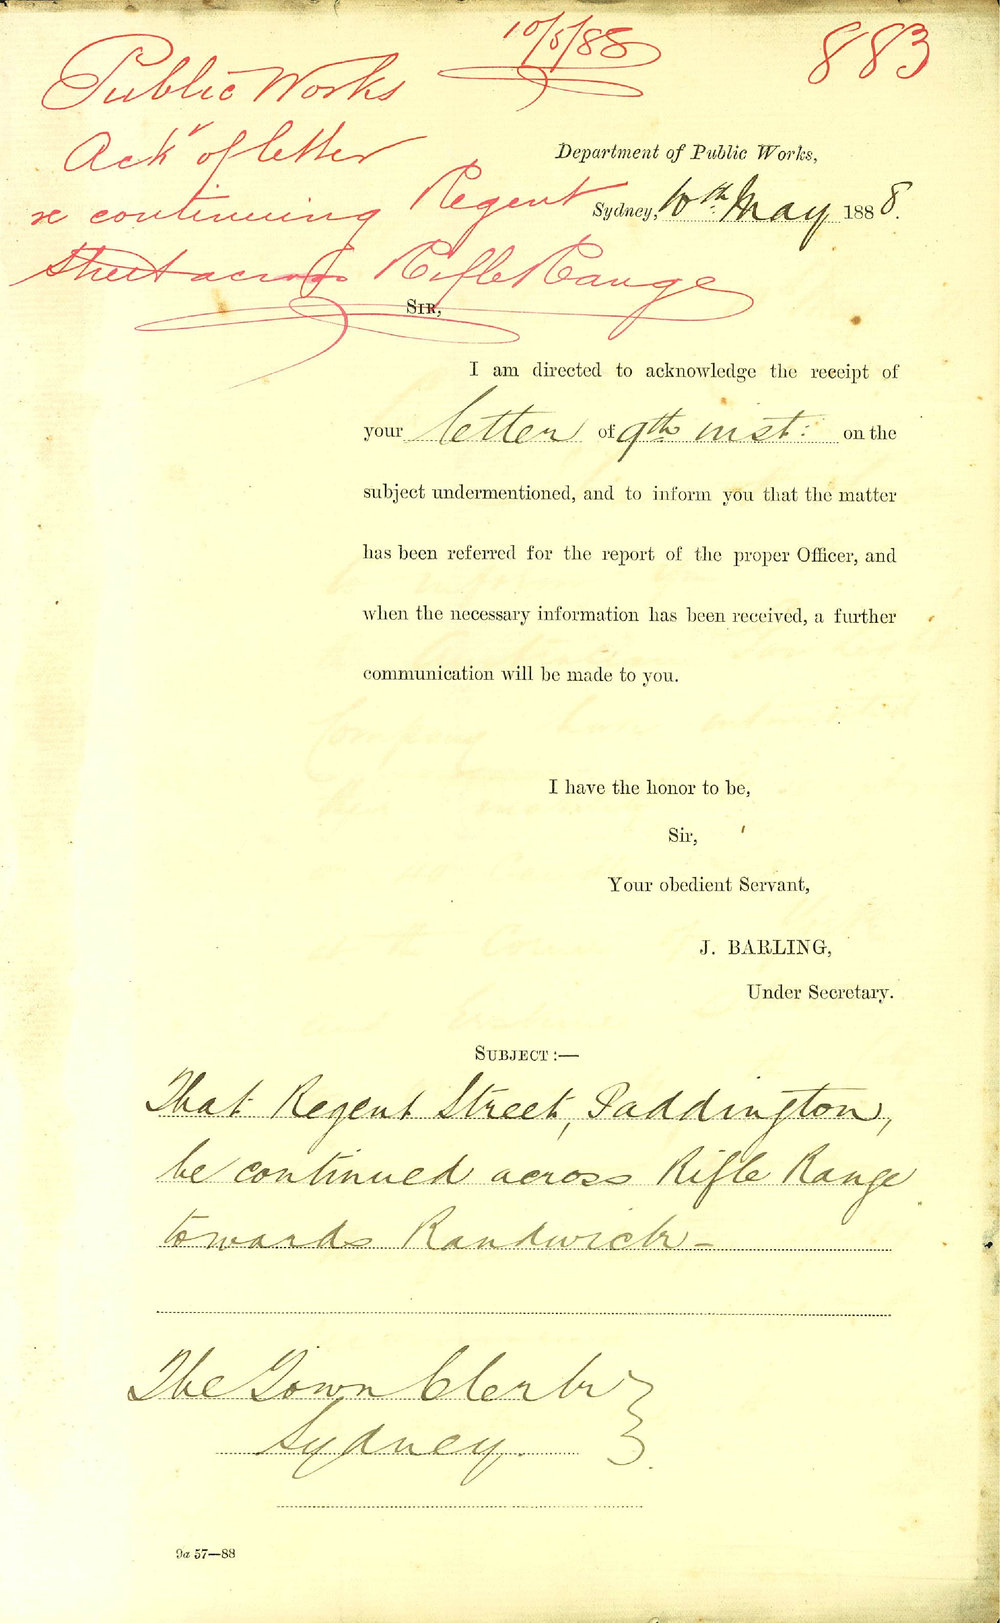 10/5/88
883
Public Works
Ackr of letter
re continuing Regent
Street across Rifle Range
Department of Public Works,
Sydney, 10th May 1888.
SIR,
I am directed to acknowledge the receipt of
your letter of 9th inst: on the
subject undermentioned, and to inform you that the matter
has been referred for the report of the proper Officer, and
when the necessary information has been received, a further
communication will be made to you.
I have the honor to be,
Sir,
Your obedient Servant,
J. BARLING,
Under Secretary.
SUBJECT:—
That Regent Street, Paddington,
be continued across Rifle Range
towards Randwick –
The Town Clerk
Sydney.
9a 57—88